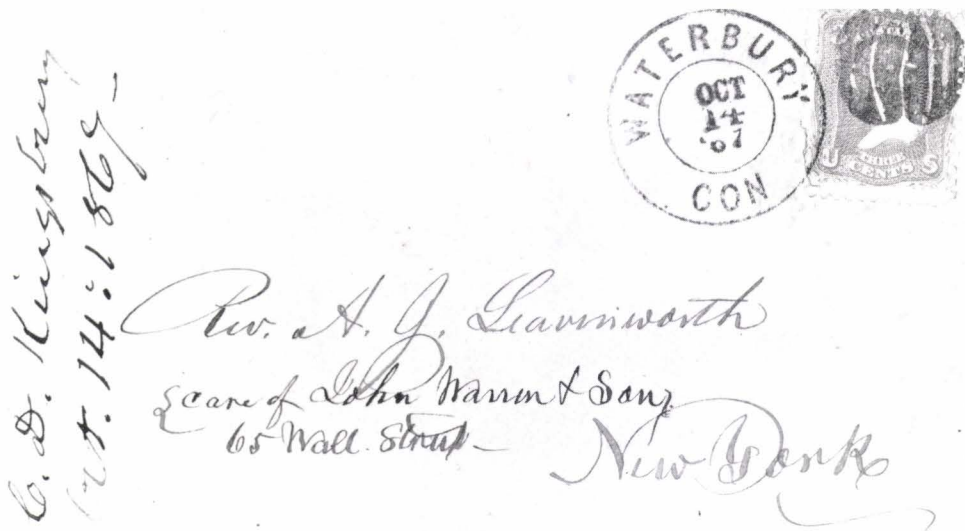 C. D. Kingsbury
Oct. 14. 1867
WATERBURY
OCT
14
'67
CON
U S
THREE
CENTS
Rev. A. J. Leavenworth
care of John Warren & Son,
65 Wall Street
New York